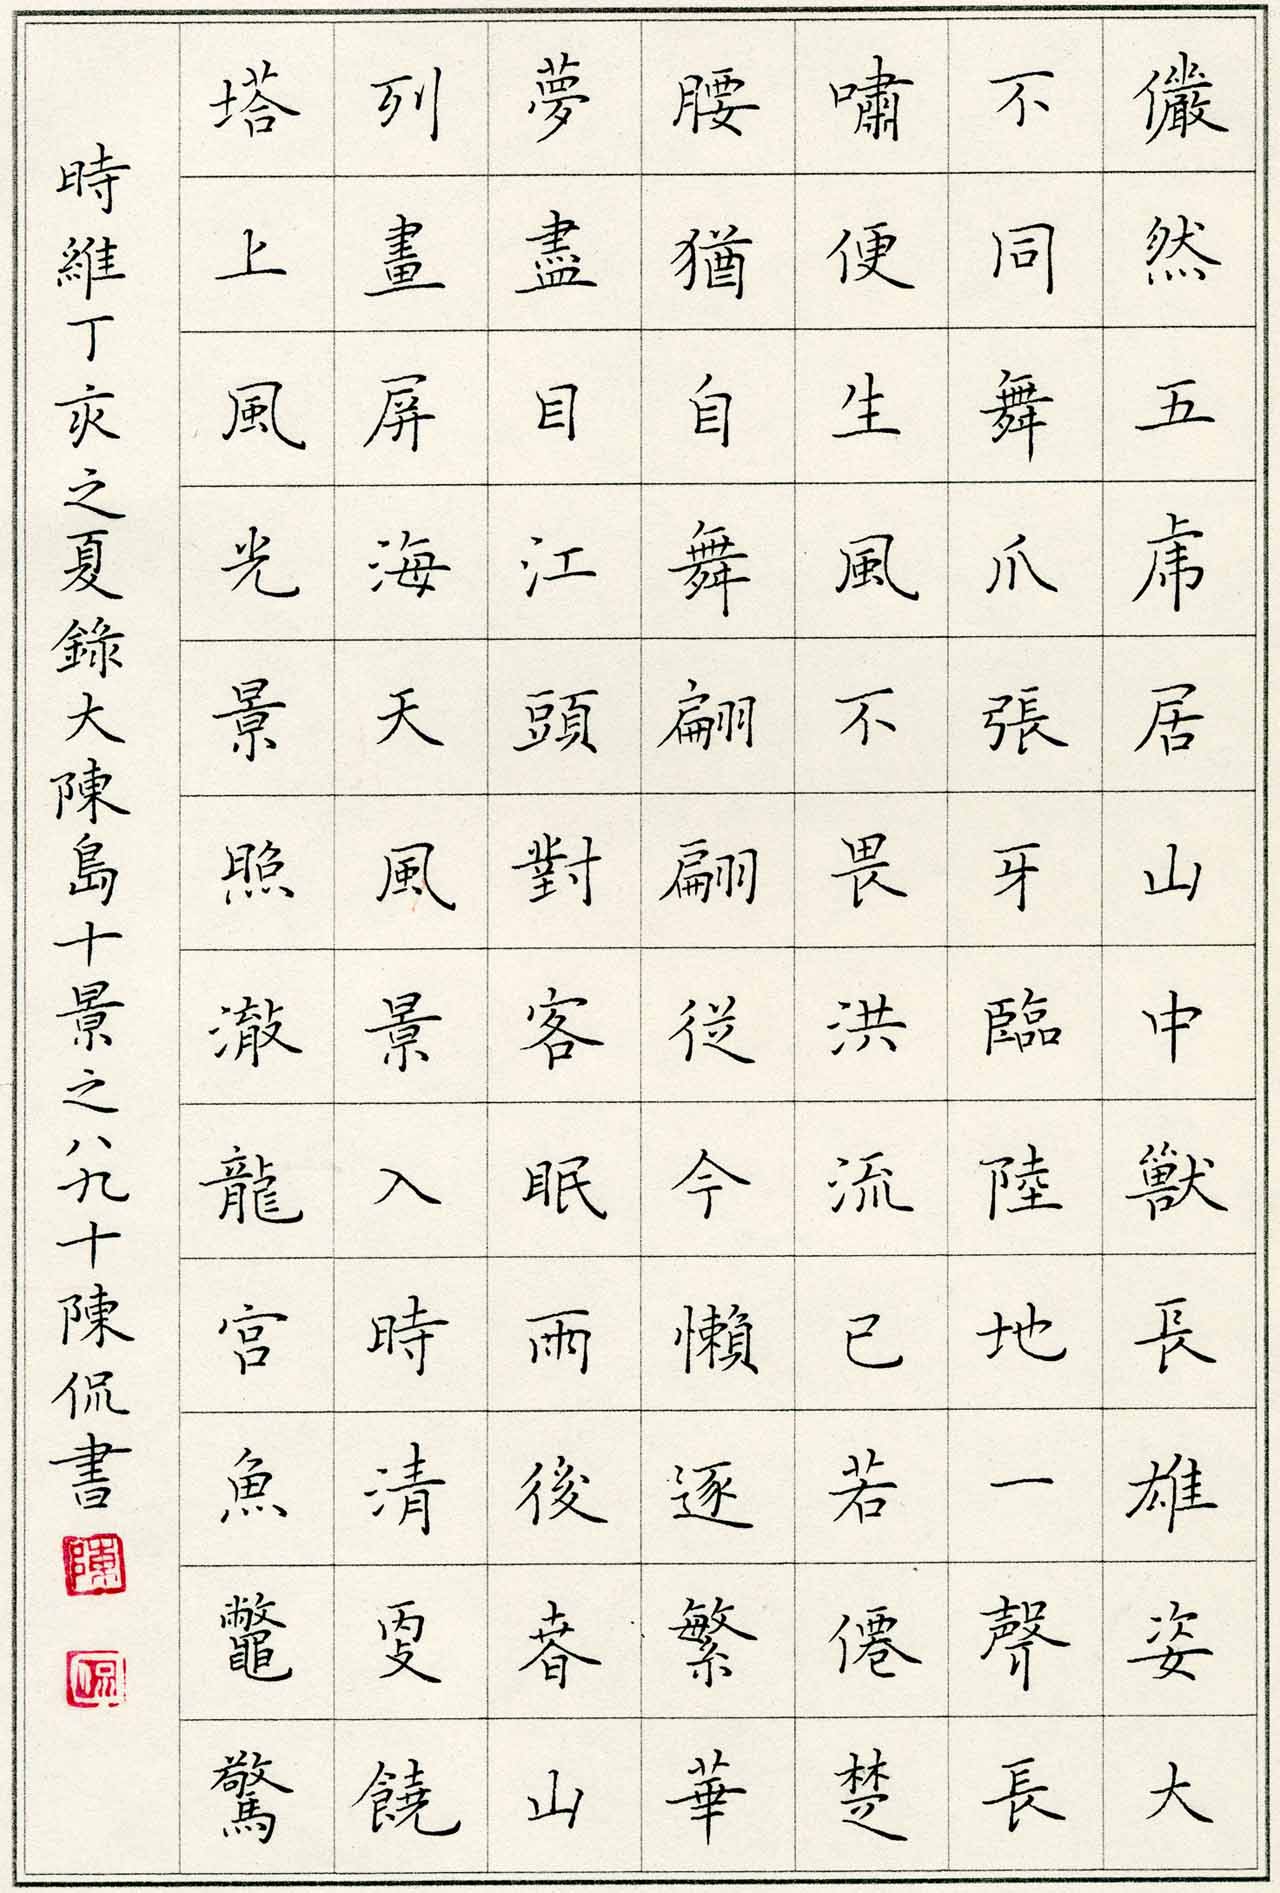 儼然五虎居山中獸長雄姿大
不同舞爪張牙臨陸地一聲長
嘯便生風不畏洪流已若僊楚
腰猶自舞翩翩從今懶逐繁華
夢盡目江頭對客眠雨後春山
列畫屏海天風景入時清更饒
塔上風光景照澈龍宮魚鼈驚
時維丁亥之夏錄大陳島十景之八九十陳侃書
陳
侃